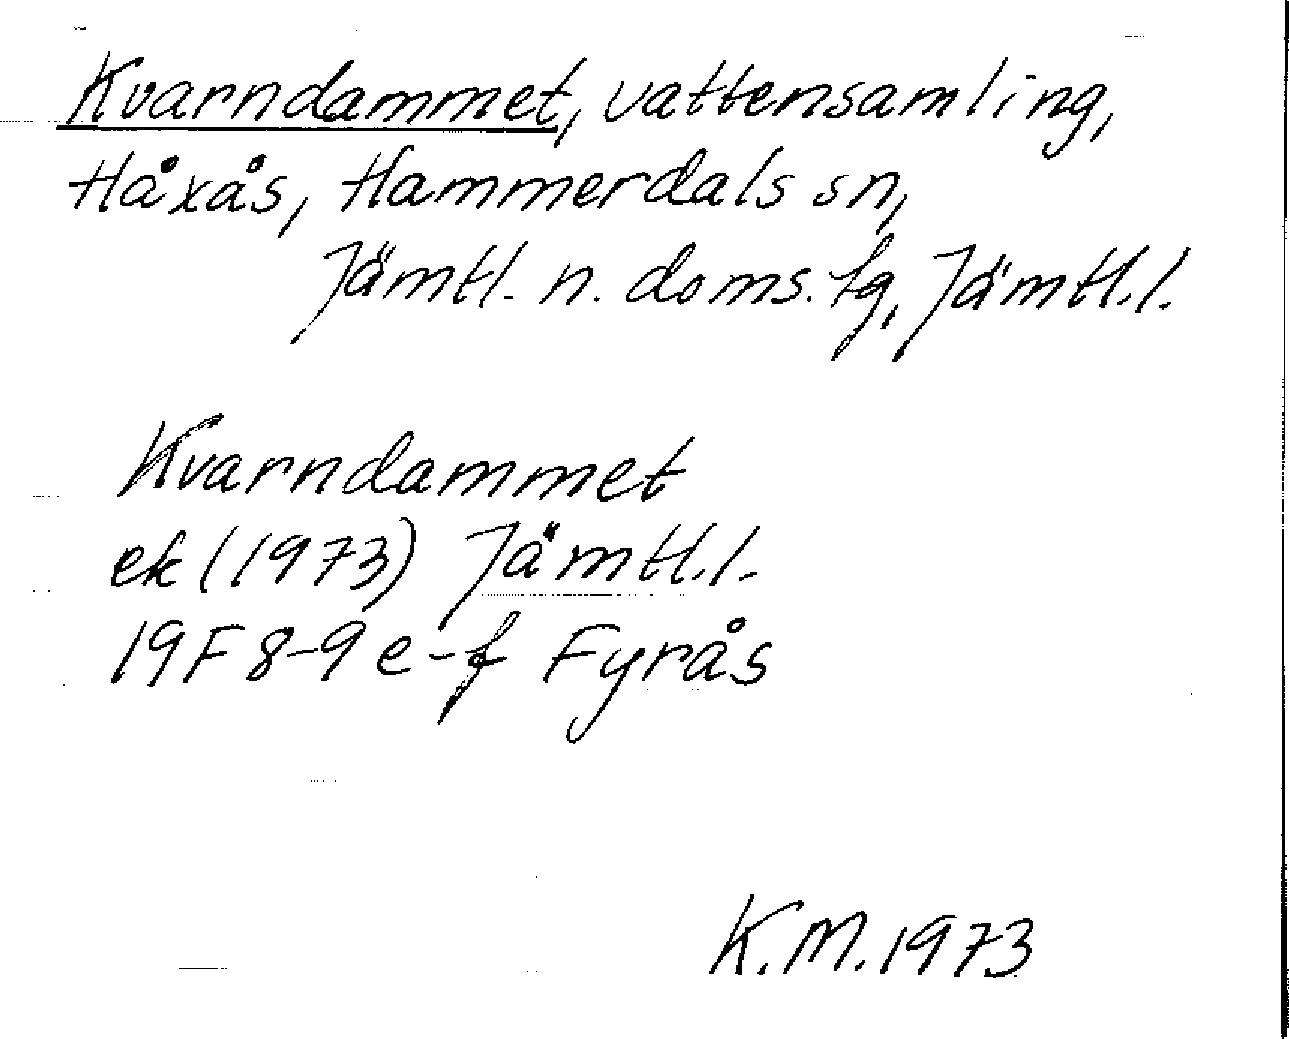 Kvarndammet, vattensamling,
Håxås, Hammerdals sn,
Jämtl. n. doms. fg, Jämtl.l.
Kvarndammet
ek (1973) Jämtl.l.
19F 8-9 e-f Fyrås
K.M. 1973